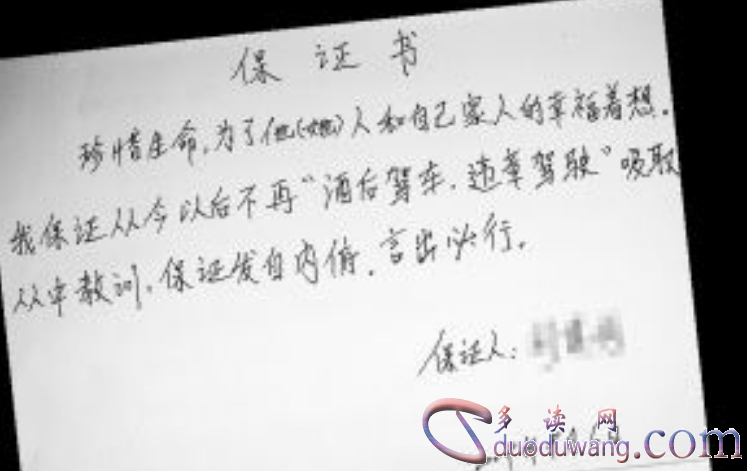 保证书
珍惜生命,为了他(她)人和自己家人的幸福着想。
我保证从今以后不再"酒后驾车,违章驾驶"吸取
从中教训,保证发自内俯,言出必行。
保证人:
多读网
duoduwang.com